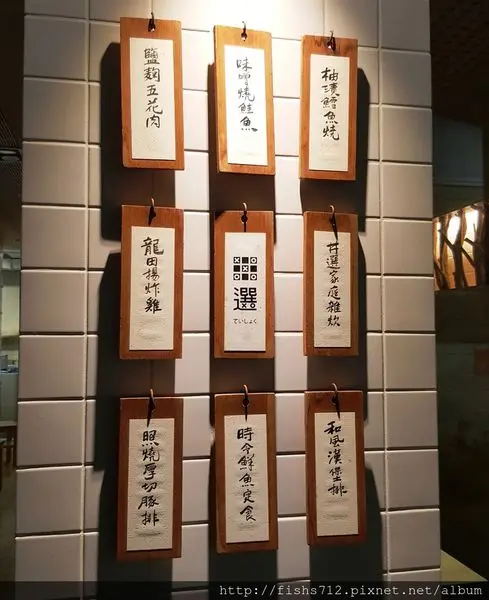 鹽麴五花肉
味噌燒鮭魚
柚漬鱈魚燒
龍田揚炸雞
選
ていしょく
丼選家庭雜炊
照燒厚切豚排
時令鮮魚定食
和風漢堡排
http://fishs712.pixnet.net/album